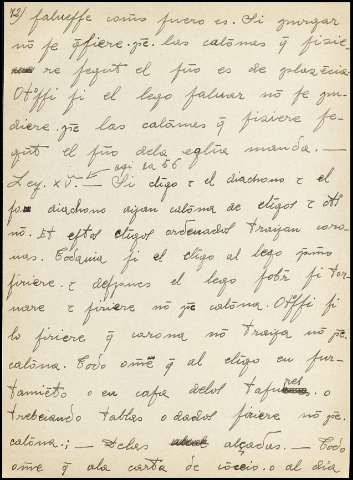 72) falueffe como fuero es. Si purgar
nō fe q̄fiere. pe. las calōnas q̄ fizie
re fegūt el fūo es de plazēcia
Otⁱffi fi el lego faluar nō fe pu-
diere. pe las calōnas q̄ fiziere fe-
gūt el fūo dela eglia manda. —
aqi ca 56
Ley. xv. — Si cligo τ el diachono τ el
fo diachono ayan calōna de cligos τ ot
nō. Et eftos cligos ordenados trayan coro-
nas. Todauia fi el cligo al lego pmo
firiere. τ defpues el lego fobr fi tor-
nare τ firiere nō pe calōna. Otⁱffi fi
lo firiere q̄ corona nō trayfa nō pe.
calōna. Todo ome q̄ al cligo en fur-
tamīēto o en cafa delos tafures. o
trebeiando tablas o dados firiere nō pe.
calōna.; — Delas alçadas. — Todo
ome q̄ ala carta de cōceio. o al dia